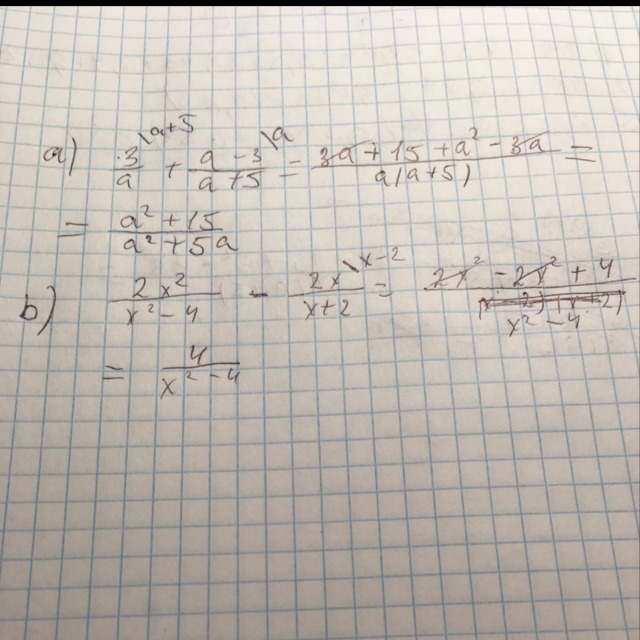 a) 3/a \a+5 + (a-3)/(a+5) \a = (3a+15+a²-3a)/(a(a+5)) =
= (a²+15)/(a²+5a)
b) 2x²/(x²-4) - 2x/(x+2) \x-2 = (2x²-2x²+4)/(x²-4)
= 4/(x²-4)